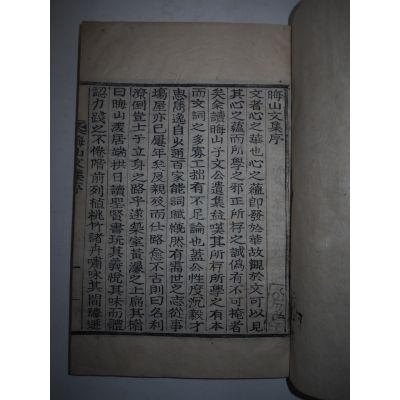 晦山文集序
文者心之華也心之蘊即發於華故觀於文可以見
其心之蘊而所學之邪正所存之誠僞有不可掩者
矣余讀晦山子文公遺集益嘆其所存所學之有本
而文詞之多寡工拙有不足論也蓋公性度沉毅才
思雋逸自少通百家能詞賦慨然有需世之志從事
場屋亦已屢年矣及親歿而仕路愈不古則曰名利
潦倒豈士子立身之路乎遂築室黃瀑之上扁其堂
曰晦山溪居端拱日讀聖賢書玩其義悅其味而體
認力踐之不倦階前列植桃竹諸卉嘯咏其間
晦山文集序